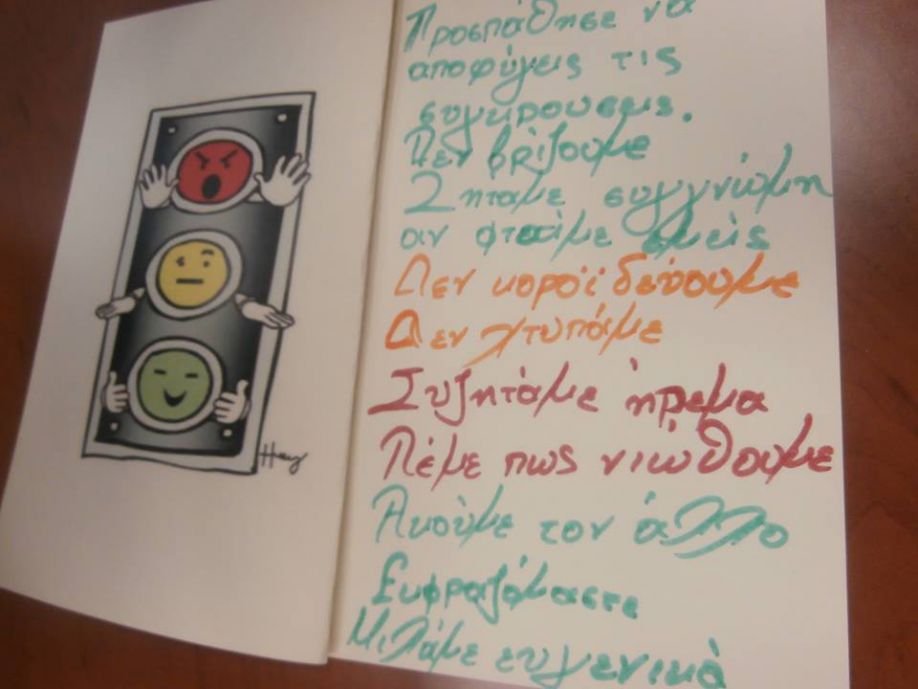 Προσπάθησε να
αποφύγεις τις
συγκρουσεις.
Δεν βρίζουμε
Ζητάμε συγγνώμη
αν φταίμε εμείς
Δεν κοροϊδεύουμε
Δεν χτυπάμε
Συζητάμε ήρεμα
Λέμε πως νιώθουμε
Ακούμε τον άλλο
Εκφραζόμαστε
Μιλάμε ευγενικά